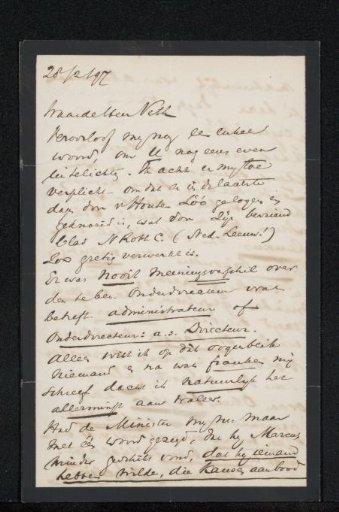 28/12/97
Waarde Heer Veth
Veroorloof mij nog een enkel
woord, om U nog eens even
in te lichten. Ik acht er mij toe
verplicht omdat er in de laatste
dagen door gelogen en
, wat door zijn bevriend
blad N Rott C. (Ned. Leeuw!)
zoo gretig verwerkt is.
Er was nooit meeningsverschil over
den te ben. Onderdirecteur wat
betreft administrateur of
Onderdirecteur: a.s. Directeur.
Alleen wist ik op dat oogenblik
niemand & na wat Francken mij
schreef dacht ik natuurlijk het
allerminst aan
Had de Minister mij nu maar
met één woord gezegd, dat hij Marcus
minder geschikt vond, dat hij iemand
hebben wilde, die kansen aanbood